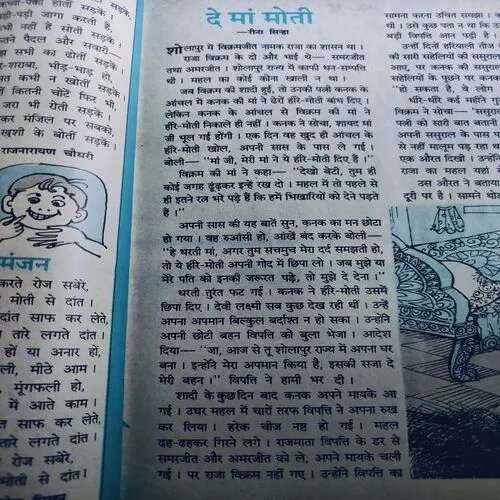 कच्ची-पक्की होतीं सड़कें।
पड़ी-पड़ी जागा करती हैं,
कभी नहीं हैं सोती सड़कें।
कितने पैदल और सवारी—
सभी का ढोतीं सड़कें।
शोर-शराबा, भीड़-भाड़ हो,
कभी न खोतीं सड़कें।
कितनी चोटें फिर भी,
जरा भी रोती सड़कें।
मंजिल पर सबको
खुशी के बोतीं सड़कें।
—राजनारायण चौधरी
मंजन
करते रोज सबेरे,
मोती से दांत।
दांत साफ कर लेते,
तारे लगते दांत।
हों या अनार हों,
मीठे आम।
मूंगफली हो,
में आते काम।
साफ कर लेते,
तारे लगते दांत।
रोज सबेरे,
मोती से दांत।
दे मां मोती
—रीना सिन्हा
शोलापुर में विक्रमजीत नामक राजा का शासन था।
राजा विक्रम के दो और भाई थे— समरजीत
तथा अमरजीत। शोलापुर राज्य में काफी धन-सम्पत्ति
थी। महल का कोई कोना खाली न था।
जब विक्रम की शादी हुई, तो उनकी पत्नी कनक के
आंचल में कनक की मां ने ढेरों हीरे-मोती बांध दिए।
लेकिन कनक के आंचल से विक्रम की मां ने
हीरे-मोती निकाले ही नहीं। कनक ने सोचा, शायद मां
जी भूल गई होंगी। एक दिन वह खुद ही आंचल के
हीरे-मोती खोल, अपनी सास के पास ले गई।
बोली— "मां जी, मेरी मां ने ये हीरे-मोती दिए हैं।"
विक्रम की मां ने कहा— "देखो बेटी, तुम ही
कोई जगह ढूंढ़कर इन्हें रख दो। महल में तो पहले से
ही इतने रत्न भरे पड़े हैं कि हमें भिखारियों को देने पड़ते
हैं।"
अपनी सास की यह बातें सुन, कनक का मन छोटा
हो गया। वह रुआंसी हो, आंखें बंद करके बोली—
"हे धरती मां, अगर तुम सचमुच मेरा दर्द समझती हो,
तो ये हीरे-मोती अपनी गोद में छिपा लो। जब मुझे या
मेरे पति को इनकी जरूरत पड़े, तो मुझे दे देना।"
धरती तुरंत फट गई। कनक ने हीरे-मोती उसमें
छिपा दिए। देवी लक्ष्मी सब कुछ देख रही थीं। उन्हें
अपना अपमान बिल्कुल बर्दाश्त न हो सका। उन्होंने
अपनी छोटी बहन विपत्ति को बुला भेजा। आदेश
दिया— "जा, आज से तू शोलापुर राज्य में अपना घर
बना। इन्होंने मेरा अपमान किया है, इसकी सजा दे
मेरी बहन।" विपत्ति ने हामी भर दी।
शादी के कुछ दिन बाद कनक अपने मायके आ
गई। उधर महल में चारों तरफ विपत्ति ने अपना रुख
कर लिया। हरेक चीज नष्ट हो गई। महल
ढह-ढहकर गिरने लगे। राजमाता विपत्ति के डर से
समरजीत और अमरजीत को ले, अपने मायके चली
गई। पर राजा विक्रम नहीं गए। उन्होंने विपत्ति का
सामना करना उचित समझा।
थी। उसे कुछ पता न था कि उ
बड़ी विपत्ति आन पड़ी है।
उन्हीं दिनों हरियाली तीज
की सारी सहेलियों की ससुराल
आए, पर कनक की ससुराल
सहेलियों के पूछने पर कनक
"हो सकता है, वे लोग
धीरे-धीरे कई महीने
विक्रम ने सोचा— "ससुरा
पत्नी को सारी बात बताने
अपनी ससुराल के पास
से नहीं मालूम पड़ रहा था
एक औरत दिखी। उन्होंने
राजा का महल यहां
उस औरत ने बताया
दूरी पर है। सामने थोड़